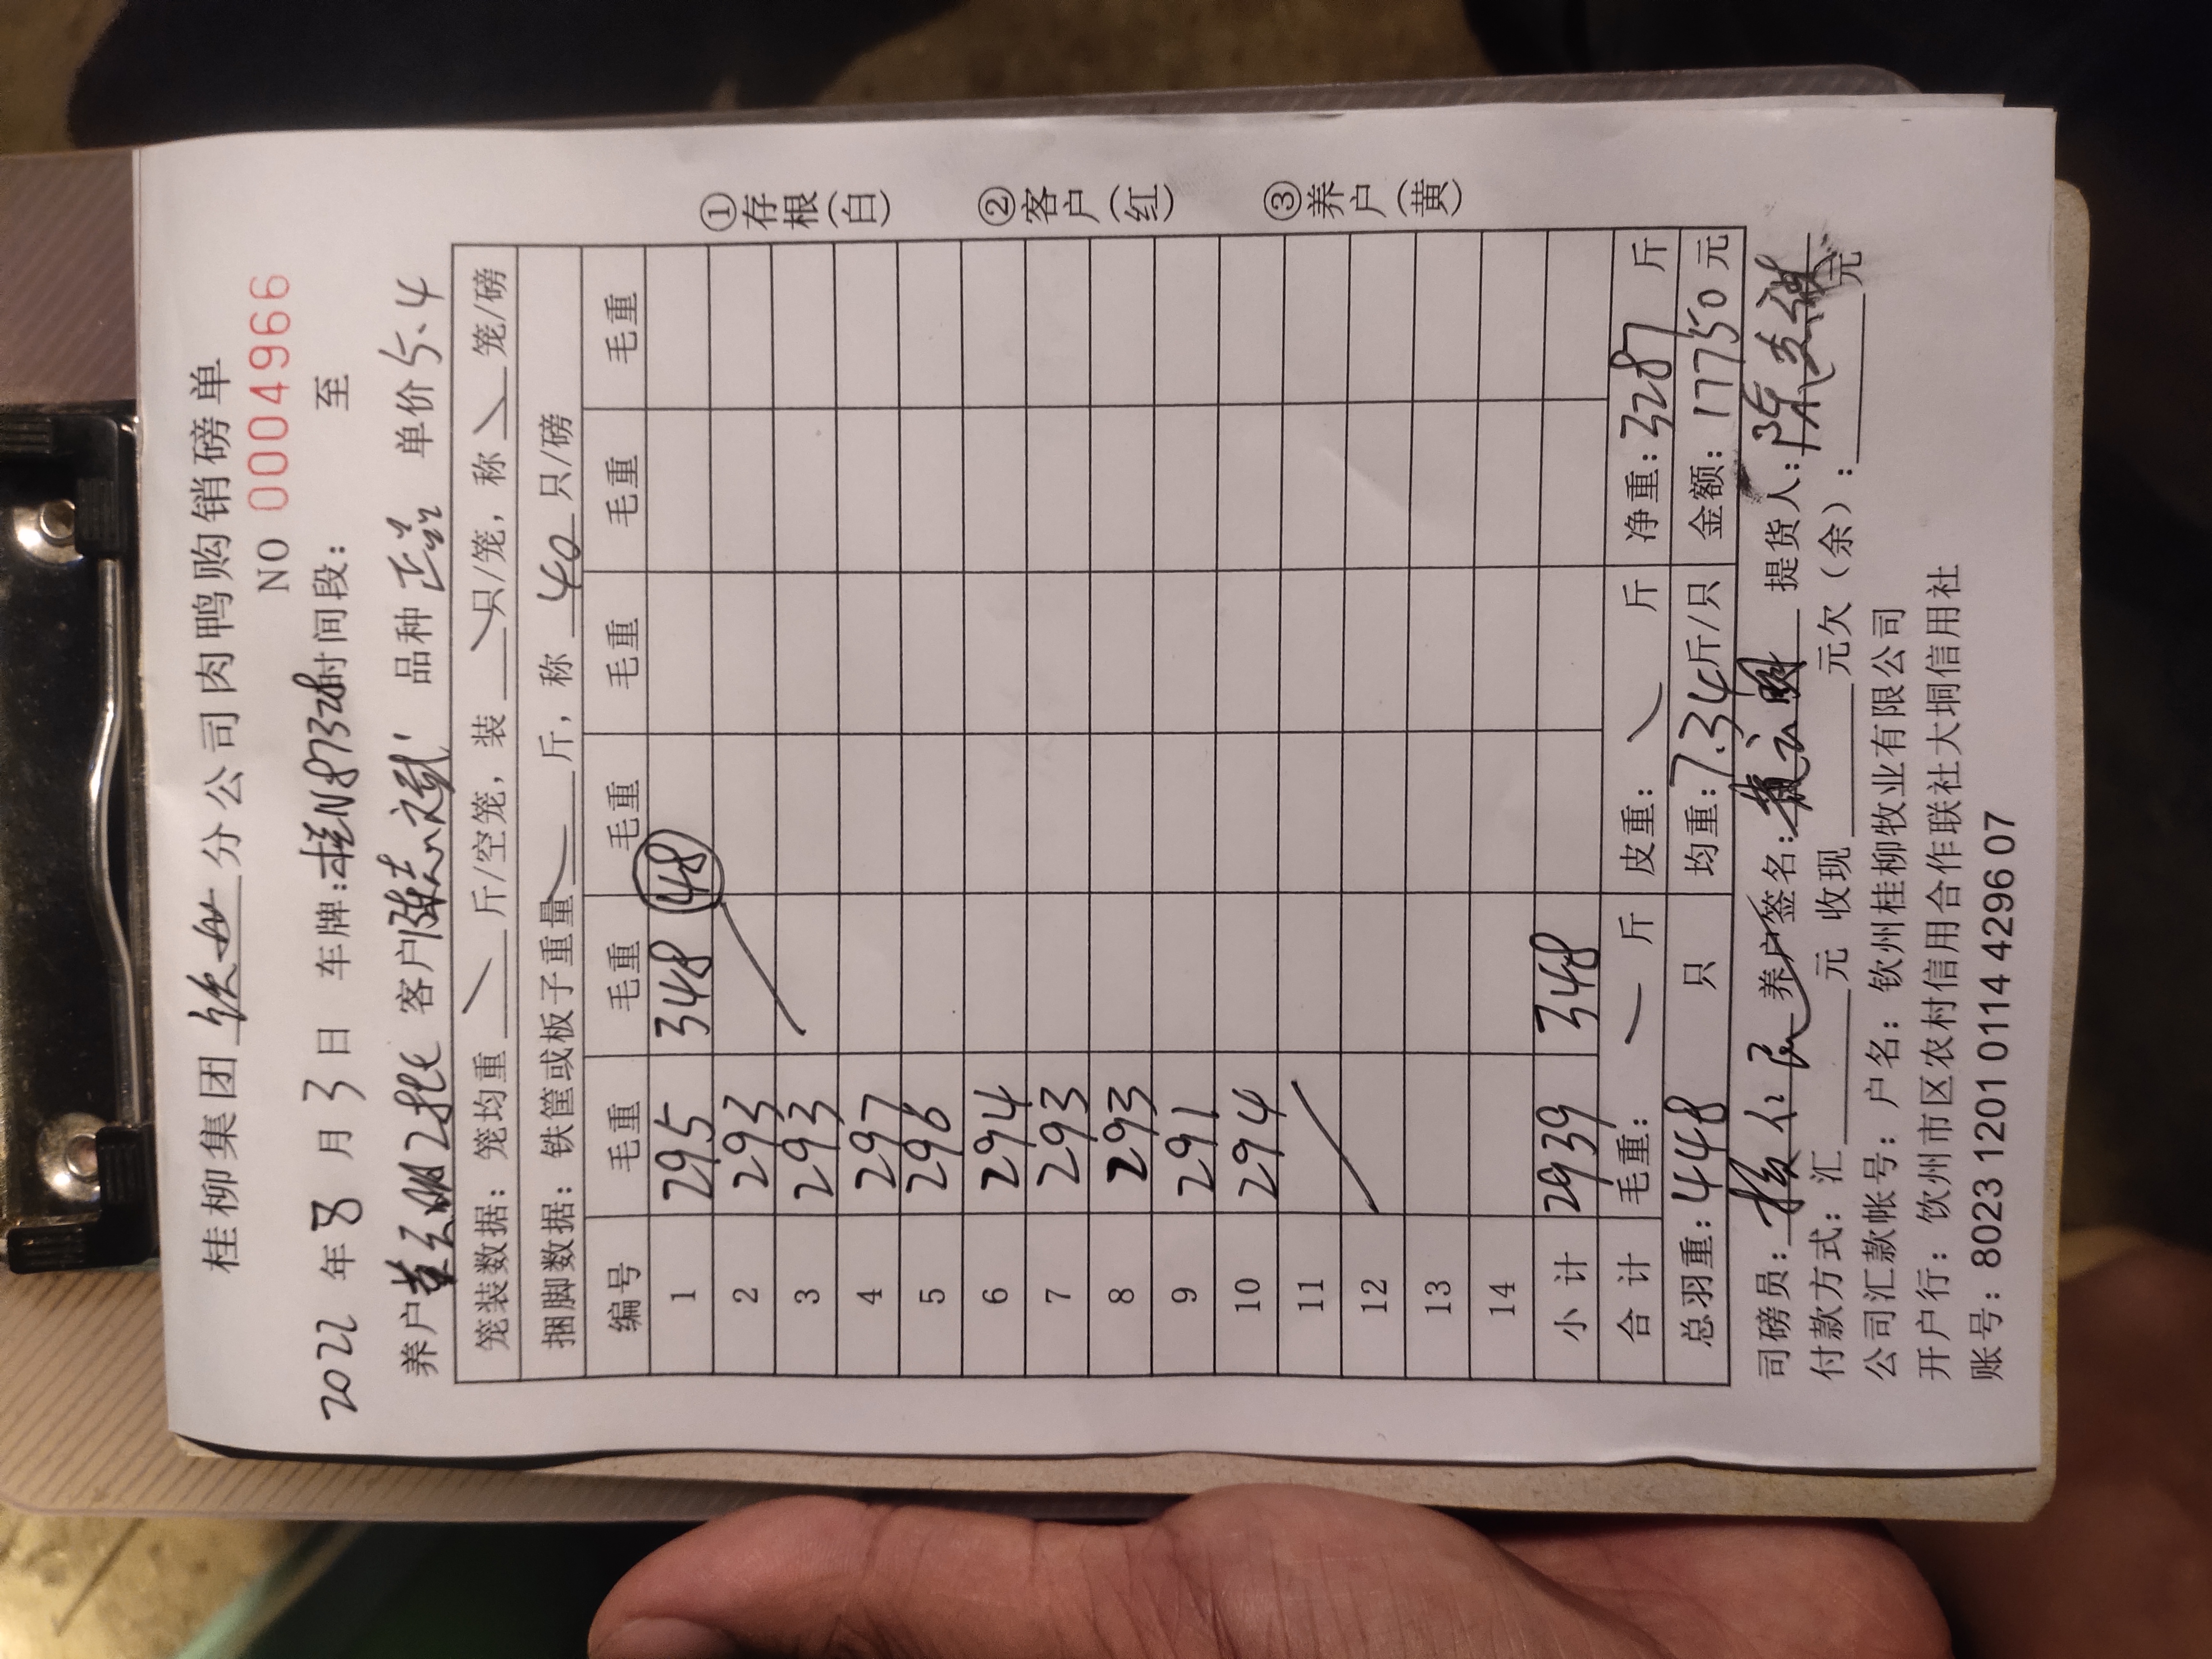 桂柳集团钦州分公司肉鸭购销磅单
NO 0004966
2022年8月3日 车牌:桂N8732时间段: 至
养户 客户陈志斌 品种 单价5.4
笼装数据: 笼均重 斤/空笼, 装 只/笼, 称 笼/磅
捆脚数据: 铁筐或板子重量 斤, 称 40 只/磅
编号 毛重 毛重 毛重 毛重 毛重 毛重
1 295 348 448
2 293
3 293
4 297
5 296
6 294
7 293
8 293
9 291
10 294
11
12
13
14
小计 2939 348
合计 毛重: 斤 皮重: 斤 净重: 3287 斤
总羽重: 448 只 均重: 7.34斤/只 金额: 17750元
司磅员: 养户签名: 提货人:
付款方式: 汇 元 收现 元欠(余): 元
公司汇款帐号: 户名: 钦州桂柳牧业有限公司
开户行: 钦州市区农村信用合作联社大垌信用社
账号: 8023 1201 0114 4296 07
①存根(白)
②客户(红)
③养户(黄)